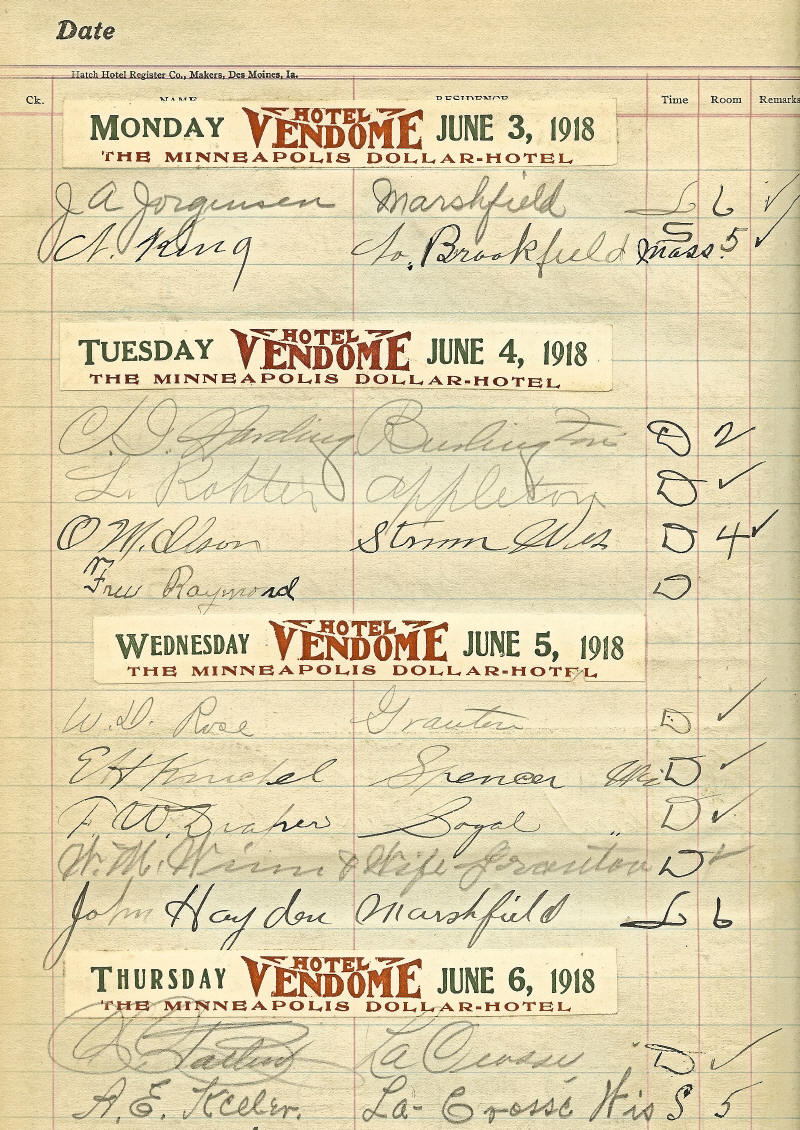 Date
Hatch Hotel Register Co., Makers, Des Moines, Ia.
Ck. NAME RESIDENCE Time Room Remarks
MONDAY HOTEL VENDOME JUNE 3, 1918
THE MINNEAPOLIS DOLLAR-HOTEL
J A Jorgensen Marshfield L 6 ✓
N. King No. Brookfield Mass. S 5 ✓
TUESDAY HOTEL VENDOME JUNE 4, 1918
THE MINNEAPOLIS DOLLAR-HOTEL
C. D. Harding Burlington D 2
L. Rohter Appleton D ✓
O M. Olson Strum Wis D 4 ✓
Raymond D
WEDNESDAY HOTEL VENDOME JUNE 5, 1918
THE MINNEAPOLIS DOLLAR-HOTEL
W. D. Rose Granton D ✓
E H Spencer Wis D ✓
F. W. Draper Loyal " D ✓
W. M. Winn & Wife Granton D ✓
John Hayden Marshfield L 6
THURSDAY HOTEL VENDOME JUNE 6, 1918
THE MINNEAPOLIS DOLLAR-HOTEL
La Crosse D ✓
A. E. Keeler. La-Crosse Wis S 5